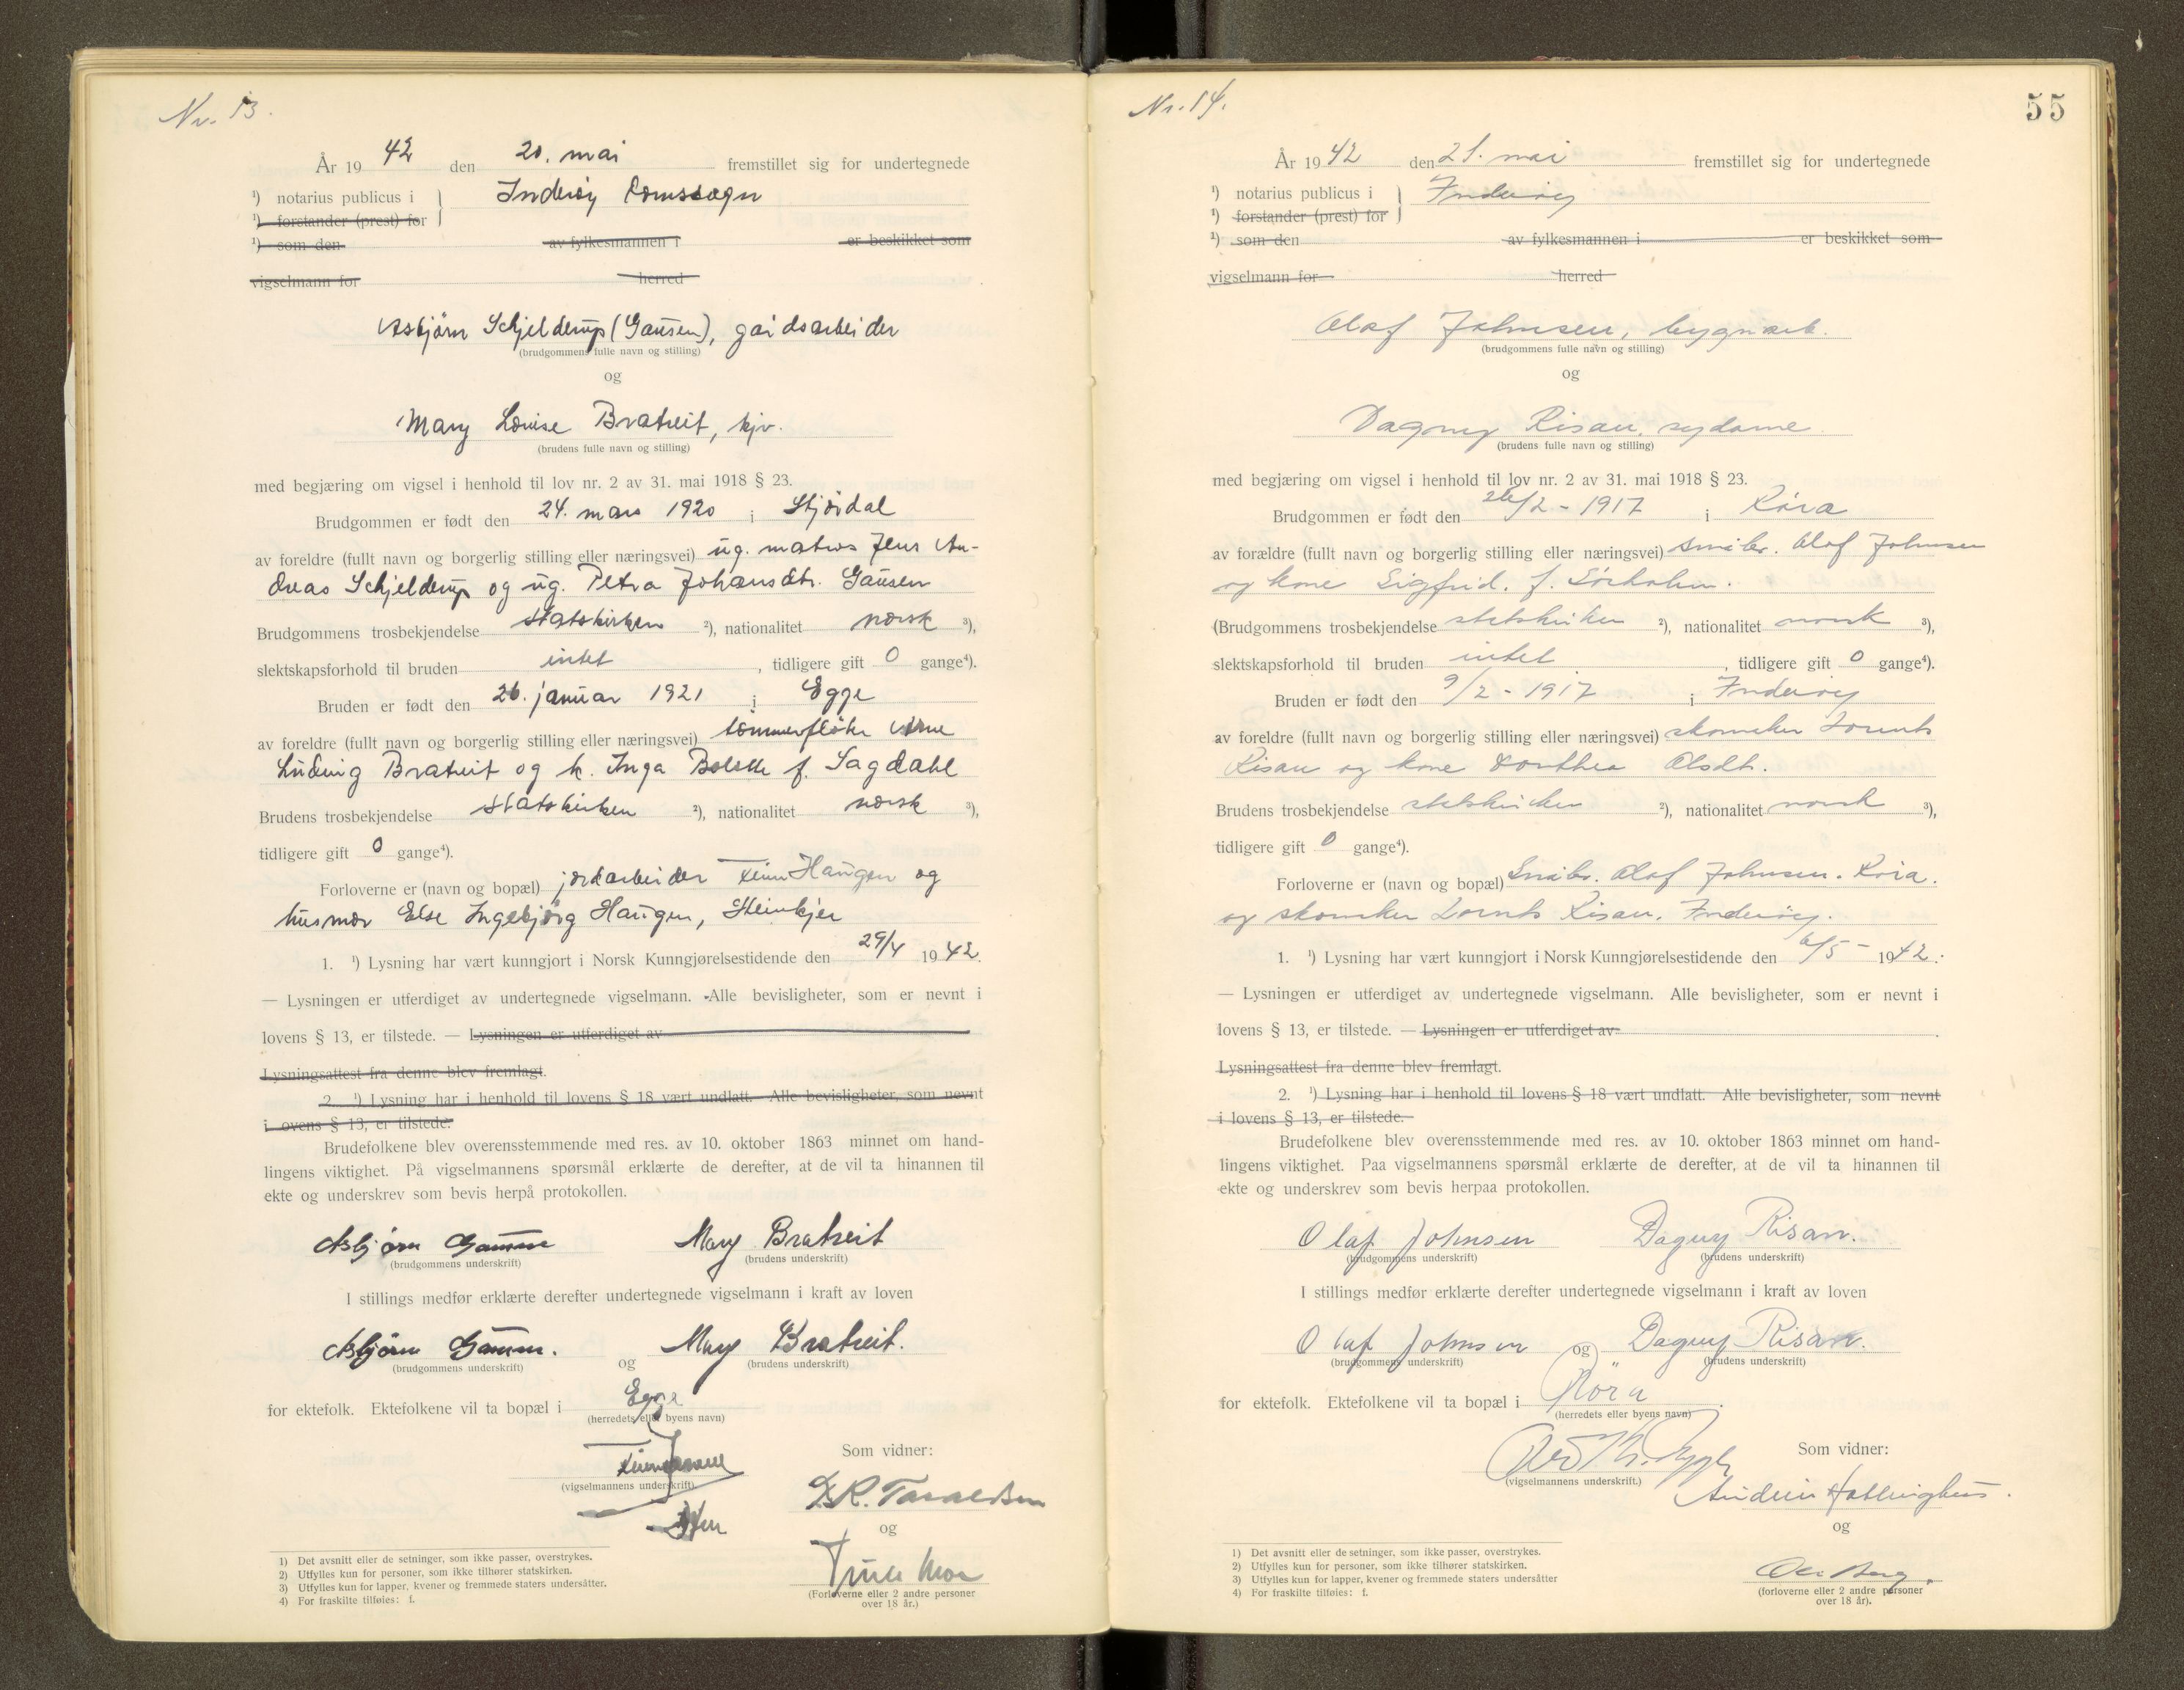 Nr. 13.
År 1942 den 20. mai fremstillet sig for undertegnede
¹) notarius publicus i } Inderøy domssogn
¹) forstander (prest) for
¹) som den av fylkesmannen i er beskikket som
vigselmann for herred
Asbjørn Schjelderup (Gausen), gårdsarbeider
(brudgommens fulle navn og stilling)
og
Mary Louise Bratreit, hjv.
(brudens fulle navn og stilling)
med begjæring om vigsel i henhold til lov nr. 2 av 31. mai 1918 § 23.
Brudgommen er født den 24. mars 1920 i Stjørdal
av foreldre (fullt navn og borgerlig stilling eller næringsvei) ug. matros Jens An-
dreas Schjelderup og ug. Petra Johansdtr. Gausen
Brudgommens trosbekjendelse statskirken ²), nationalitet norsk ³),
slektskapsforhold til bruden intet, tidligere gift 0 gange⁴).
Bruden er født den 26. januar 1921 i Egge
av foreldre (fullt navn og borgerlig stilling eller næringsvei) tømmerfløter Arne
Ludvig Bratreit og h. Inga Bolette f. Sagdahl
Brudens trosbekjendelse statskirken ²), nationalitet norsk ³),
tidligere gift 0 gange⁴).
Forloverne er (navn og bopæl) jordarbeider Finn Haugen og
husmor Else Ingebjørg Haugen, Steinkjer
1. ¹) Lysning har vært kunngjort i Norsk Kunngjørelsestidende den 29/4 1942.
— Lysningen er utferdiget av undertegnede vigselmann. Alle bevisligheter, som er nevnt i
lovens § 13, er tilstede. — Lysningen er utferdiget av
Lysningsattest fra denne blev fremlagt.
2. ¹) Lysning har i henhold til lovens § 18 vært undlatt. Alle bevisligheter, som nevnt
i lovens § 13, er tilstede.
Brudefolkene blev overensstemmende med res. av 10. oktober 1863 minnet om hand-
lingens viktighet. På vigselmannens spørsmål erklærte de derefter, at de vil ta hinannen til
ekte og underskrev som bevis herpå protokollen.
Asbjørn Gausen Mary Bratreit
(brudgommens underskrift) (brudens underskrift)
I stillings medfør erklærte derefter undertegnede vigselmann i kraft av loven
Asbjørn Gausen. og Mary Bratreit.
(brudgommens underskrift) (brudens underskrift)
for ektefolk. Ektefolkene vil ta bopæl i Egge
(herredets eller byens navn)
Som vidner:
(vigselmannens underskrift)
og
(Forloverne eller 2 andre personer
over 18 år.)
1) Det avsnitt eller de setninger, som ikke passer, overstrykes.
2) Utfylles kun for personer, som ikke tilhører statskirken.
3) Utfylles kun for lapper, kvener og fremmede staters undersåtter.
4) For fraskilte tilføies: f.
Nr. 14.
55
År 1942 den 21. mai fremstillet sig for undertegnede
¹) notarius publicus i } Inderøy
¹) forstander (prest) for
¹) som den av fylkesmannen i er beskikket som
vigselmann for herred
Olaf Johnsen, bygn.arb.
(brudgommens fulle navn og stilling)
og
Dagny Risan, sydame
(brudens fulle navn og stilling)
med begjæring om vigsel i henhold til lov nr. 2 av 31. mai 1918 § 23.
Brudgommen er født den 26/2 - 1917 i Røra
av forældre (fullt navn og borgerlig stilling eller næringsvei) småbr. Olaf Johnsen
og kone Sigfrid. f.
(Brudgommens trosbekjendelse statskirken ²), nationalitet norsk ³),
slektskapsforhold til bruden intet, tidligere gift 0 gange⁴).
Bruden er født den 9/2 - 1917 i Inderøy
av foreldre (fullt navn og borgerlig stilling eller næringsvei) skomaker Lornts
Risan og kone Dorthea Olsdtr.
Brudens trosbekjendelse statskirken ²), nationalitet norsk ³),
tidligere gift 0 gange⁴).
Forloverne er (navn og bopæl) Småbr. Olaf Johnsen. Røra.
og skomaker Lornts Risan. Inderøy.
1. ¹) Lysning har vært kunngjort i Norsk Kunngjørelsestidende den 6/5 - 1942.
— Lysningen er utferdiget av undertegnede vigselmann. Alle bevisligheter, som er nevnt i
lovens § 13, er tilstede. — Lysningen er utferdiget av
Lysningsattest fra denne blev fremlagt.
2. ¹) Lysning har i henhold til lovens § 18 vært undlatt. Alle bevisligheter, som nevnt
i lovens § 13, er tilstede.
Brudefolkene blev overensstemmende med res. av 10. oktober 1863 minnet om hand-
lingens viktighet. Paa vigselmannens spørsmål erklærte de derefter, at de vil ta hinannen til
ekte og underskrev som bevis herpaa protokollen.
Olaf Johnsen Dagny Risan.
(brudgommens underskrift) (brudens underskrift)
I stillings medfør erklærte derefter undertegnede vigselmann i kraft av loven
Olaf Johnsen og Dagny Risan.
(brudgommens underskrift) (brudens underskrift)
for ektefolk. Ektefolkene vil ta bopæl i Röra.
(herredets eller byens navn)
Som vidner:
(vigselmannens underskrift.)
og
(forloverne eller 2 andre personer
over 18 år).
1) Det avsnitt eller de setninger, som ikke passer, overstrykes.
2) Utfylles kun for personer, som ikke tilhører statskirken.
3) Utfylles kun for lapper, kvener og fremmede staters undersåtter
4) For fraskilte tilføies: f.